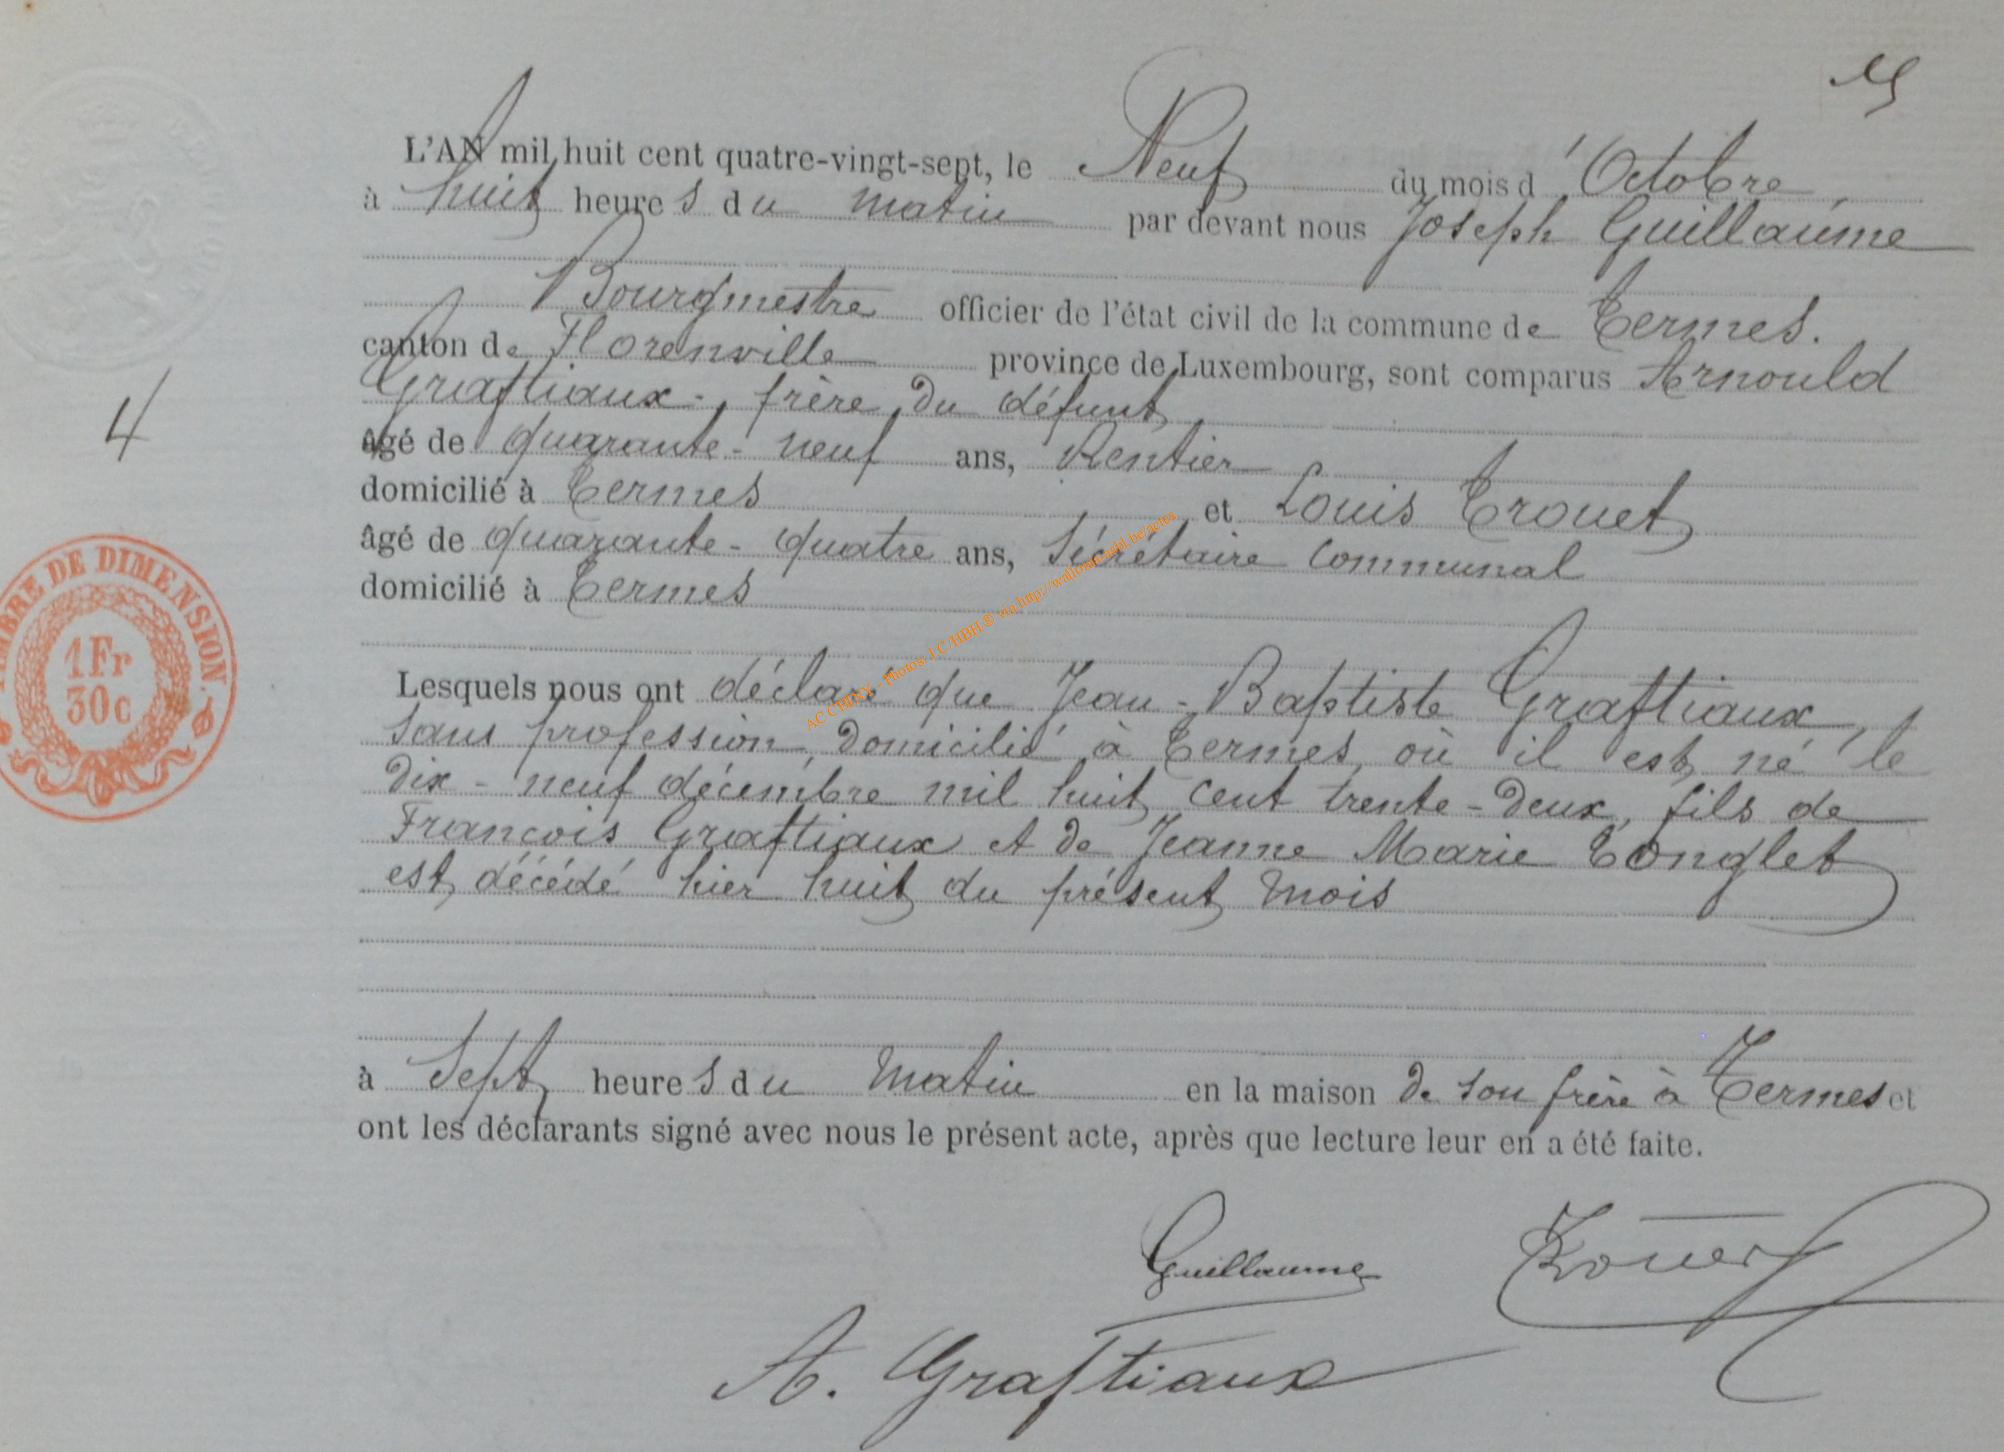 L'AN mil huit cent quatre-vingt-sept, le Neuf du mois d'Octobre
à huit heures du matin par devant nous Joseph Guillaume
Bourgmestre officier de l'état civil de la commune de Termes.
canton de Florenville province de Luxembourg, sont comparus Arnould
Graftiaux, frère du défunt,
âgé de quarante-neuf ans, Rentier
domicilié à Termes et Louis Trouet
âgé de quarante-quatre ans, Sécrétaire Communal
domicilié à Termes
4
TIMBRE DE DIMENSION.
1Fr
30c
AC CHINY - Photos: J.C./HBH.© via http://wallonia.asbl.be/actes
Lesquels nous ont déclaré que Jean-Baptiste Graftiaux,
sans profession, domicilié à Termes, où il est né le
dix-neuf décembre mil huit cent trente-deux, fils de
François Graftiaux et de Jeanne Marie Tonglet
est décédé hier huit du présent mois
à Sept heures du matin en la maison de son frère à Termes et
ont les déclarants signé avec nous le présent acte, après que lecture leur en a été faite.
Guillaume Trouet
A. Graftiaux